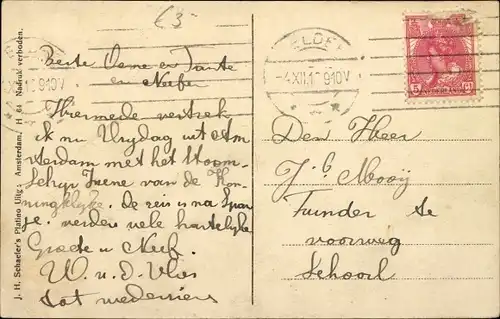 €3
Beste Oeme en Tante
en Neefen
Hiermede vertrek
ik nu Vrijdag uit Am
sterdam met het Stoom-
schip Irene van de Kon-
ningklijke. de reis is na
verders vele hartelijke
Groete u Neef.
W. v. d. Vlies
tot wederziens
J. H. Schaefer's Platino Uitg.: Amsterdam. H 84 Nadruk verboden.
-4XII.1 910V
NEDERLAND
5 Ct
Den Heer
J. Mooij
Tuinder te
voorweg
Schoorl